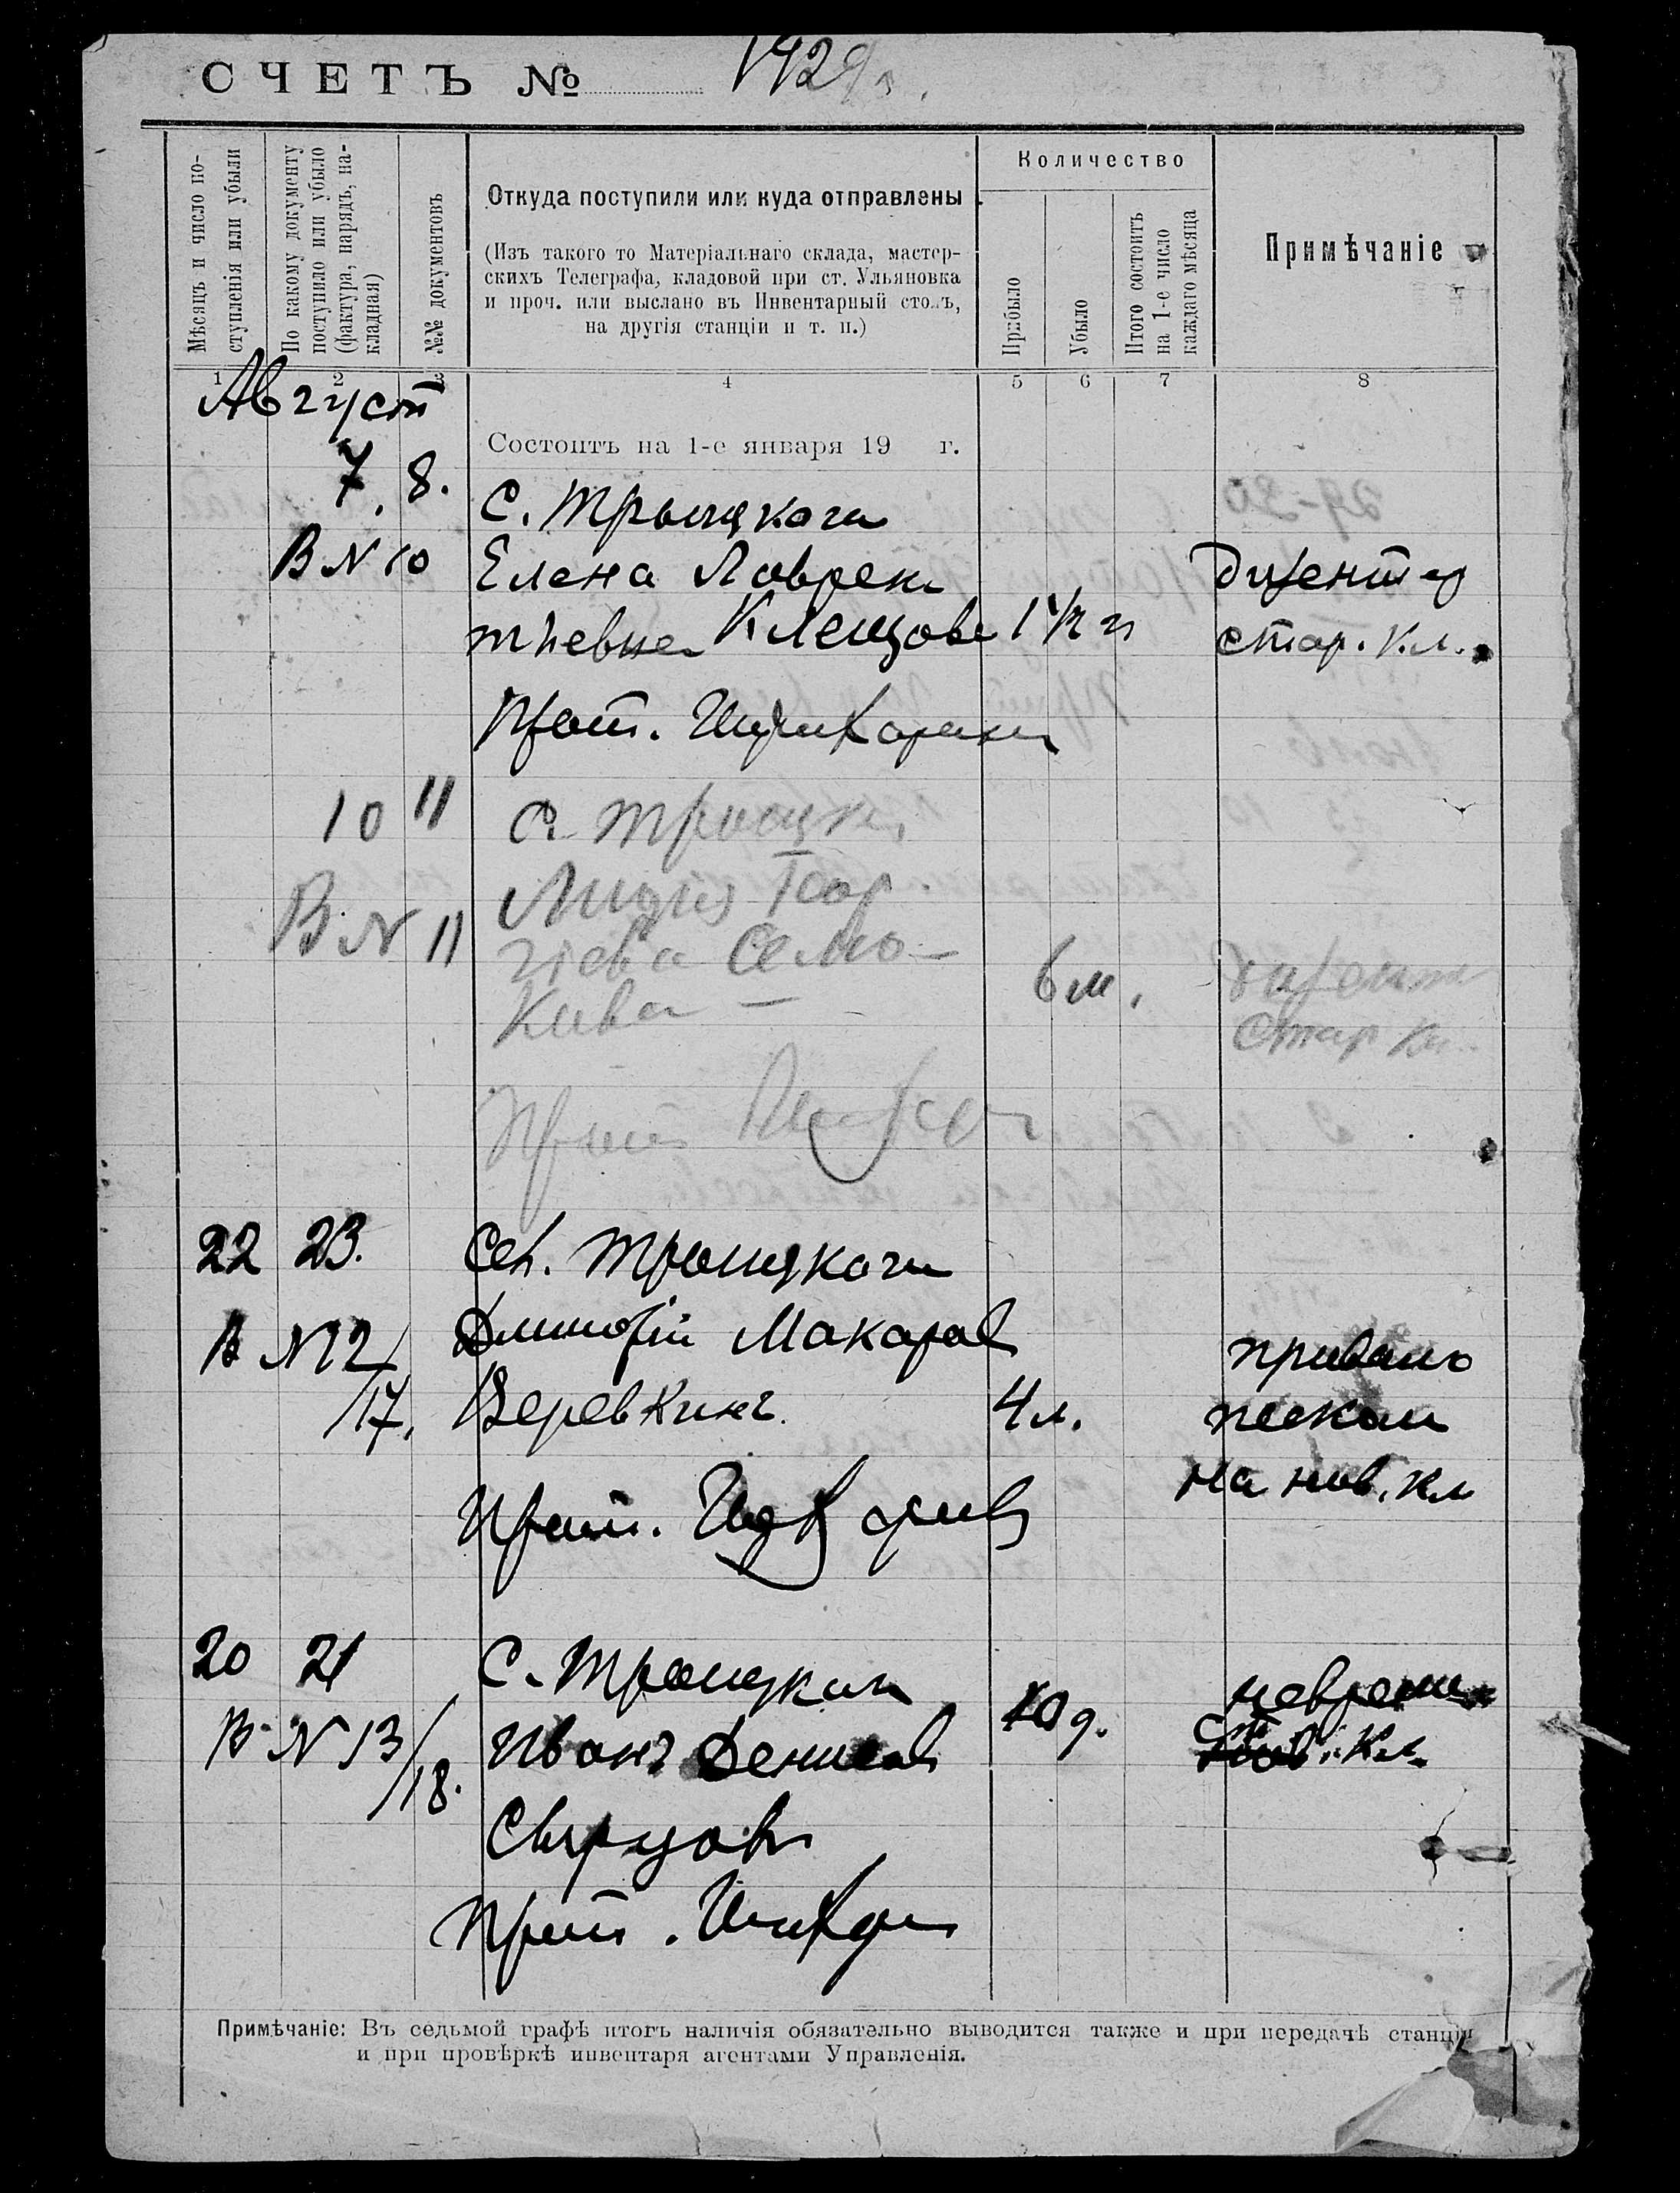 СЧЕТЪ № 1929 г.
Мѣсяцъ и число по-
ступленія или убыли
По какому документу
поступило или убыло
(фактура, нарядъ, на-
кладная)
№№ документовъ
Откуда поступили или куда отправлены
(Изъ такого то Матеріальнаго склада, мастер-
скихъ Телеграфа, кладовой при ст. Ульяновка
и проч. или выслано въ Инвентарный столъ,
на другія станціи и т. п.)
Количество
Прибыло
Убыло
Итого состоитъ
на 1-е число
каждаго мѣсяца
Примѣчаніе
1 2 3 4 5 6 7 8
Август
Состоитъ на 1-е января 19 г.
7. 8.
С. Троицкаги
В N 10 Елена Лаврен
тьевна Клещова 1 1/2 г
стар. Кл.
Прот.
10 11 С. Троицк.
Лидия Геор
В N 11 гіева Семо-
кива - 6 м.
стар Кл.
22 23. Сел. Троицкаги
В N 12/17. Дмитрій Макаров
Веревкинъ. 4 л.
на нов. кл
Прот.
20 21 С. Троицкаги
В N 13/18. Иванъ Денисов 10 д.
Свирцовъ
Прот.
Примѣчаніе: Въ седьмой графѣ итогъ наличія обязательно выводится также и при передачѣ станціи
и при провѣркѣ инвентаря агентами Управленія.